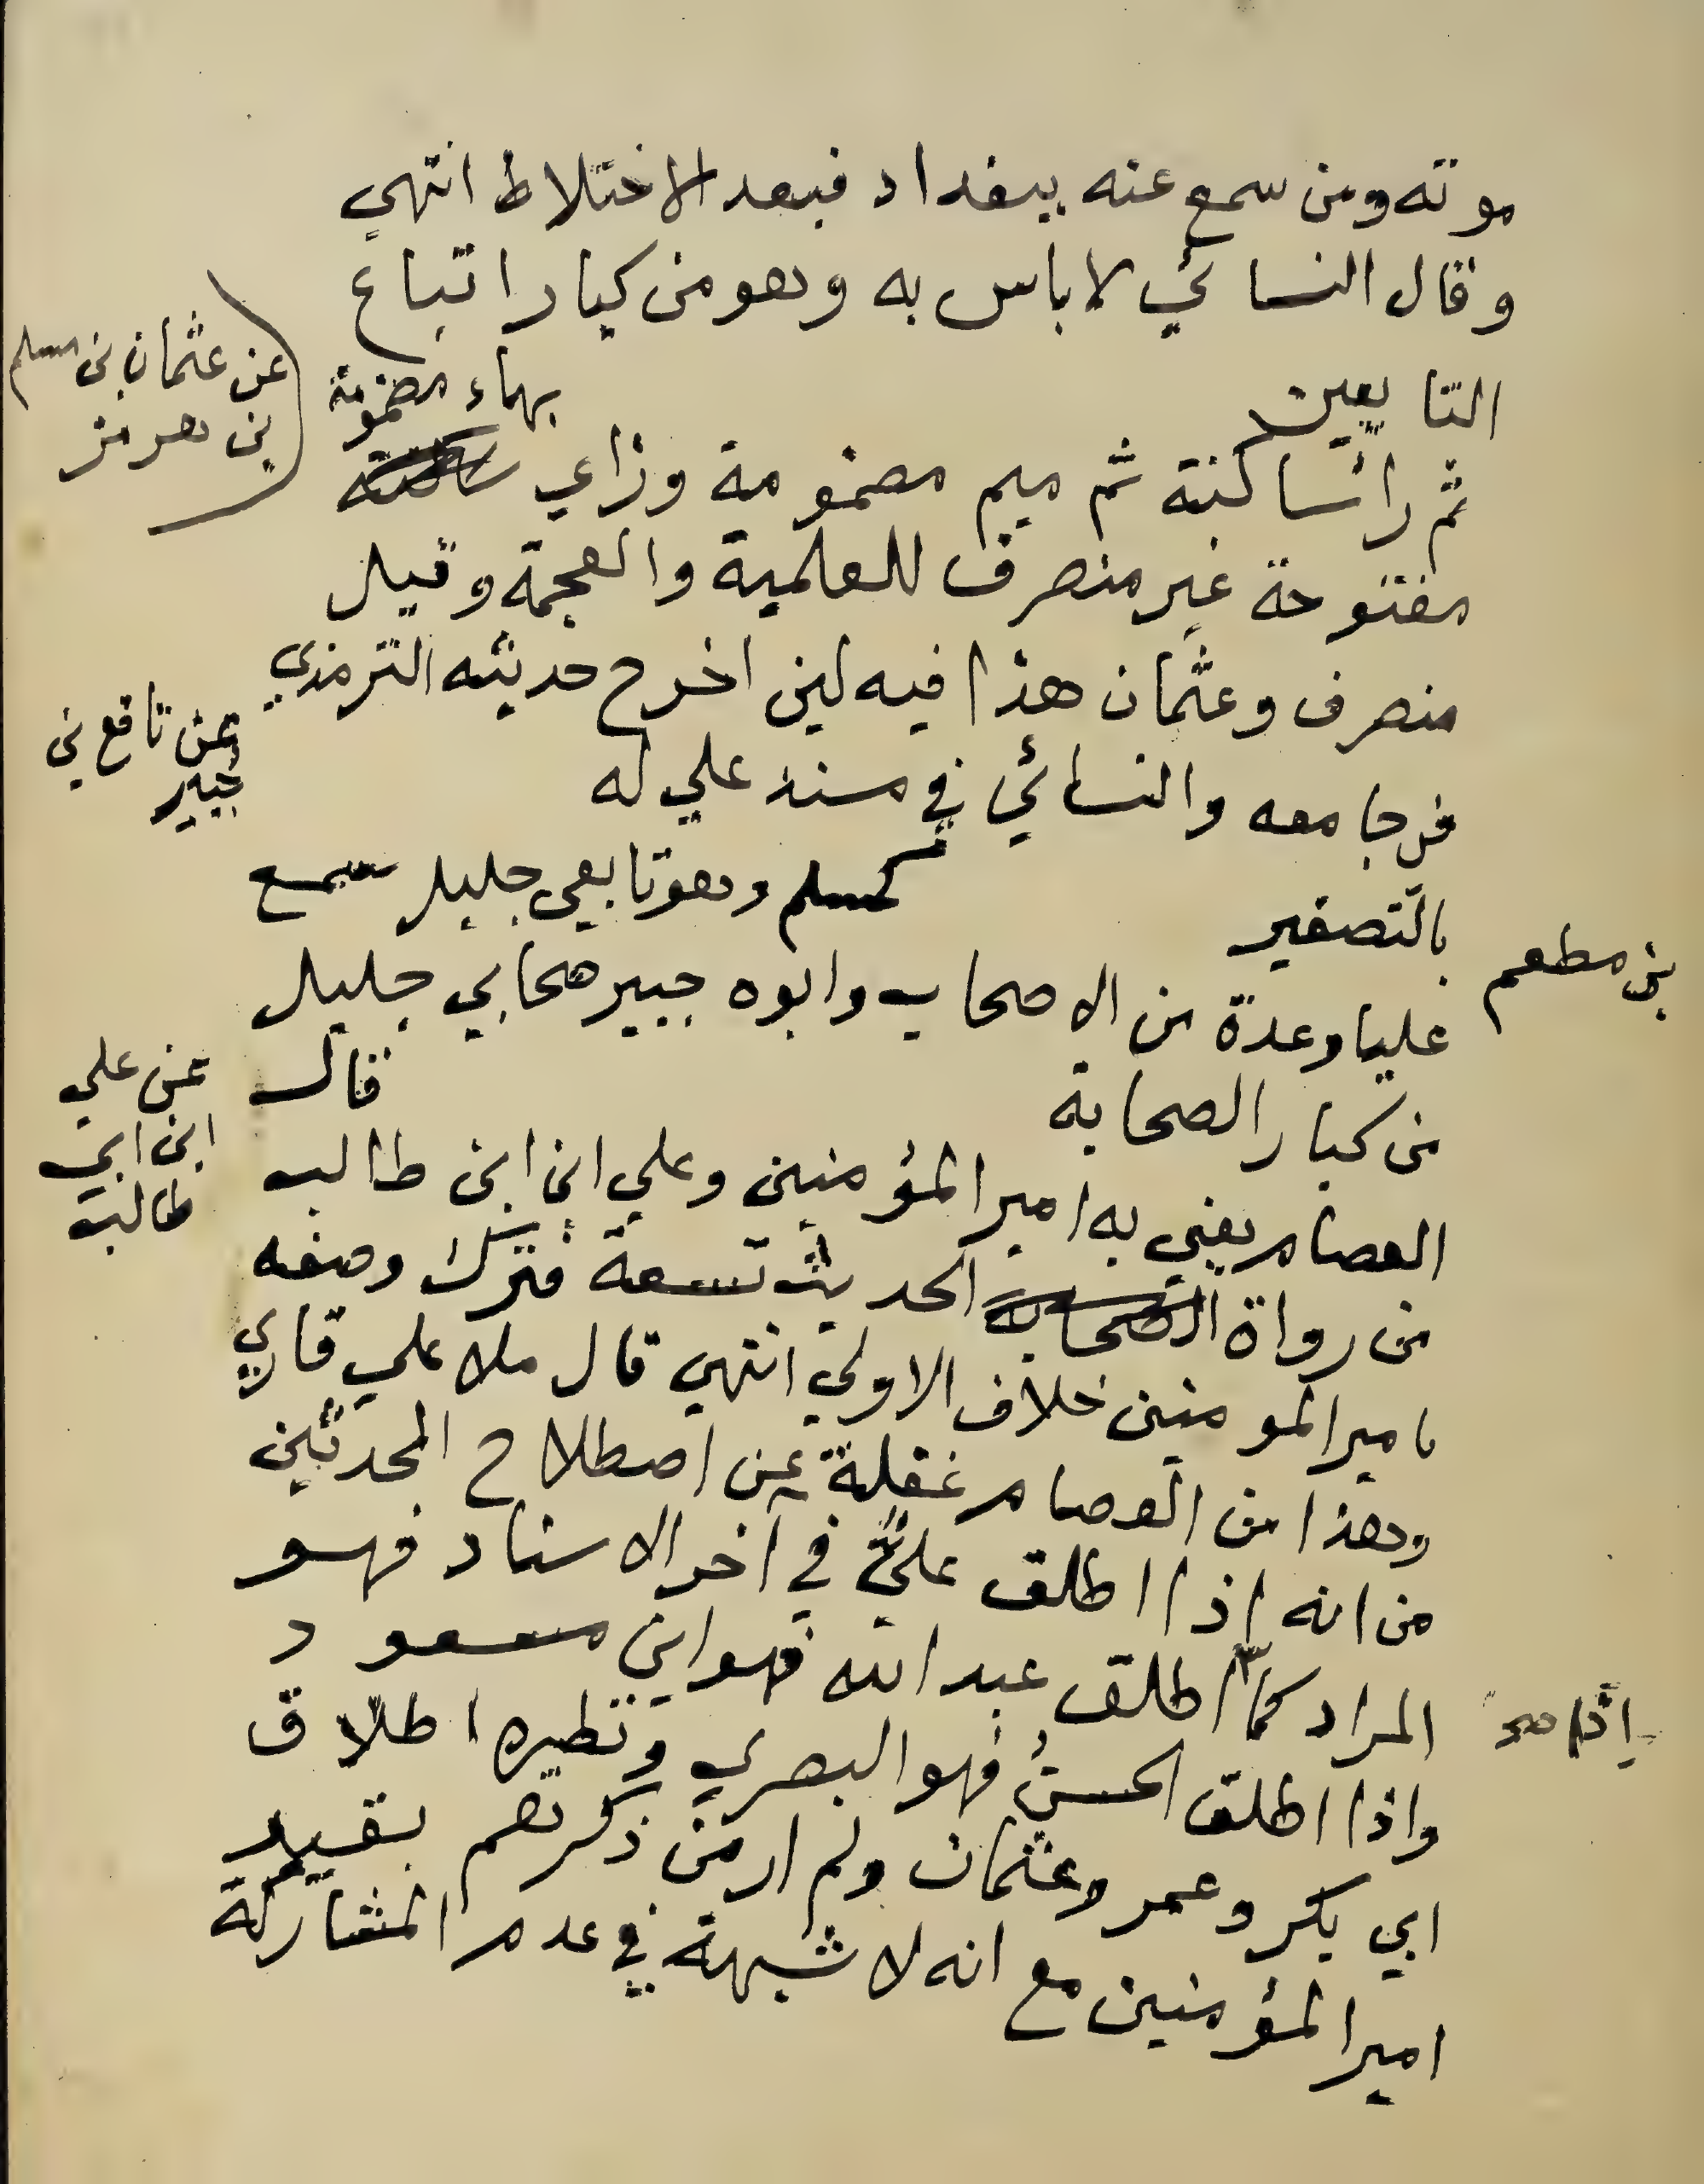 موته ومن سمع عنه ببغداد فبعد الاختلاط انتهي
وقال النسائي لا باس به وهو من كبار اتباع
التابعين
عن عثمان بن مسلم
بن هرمز
بهاء مضمومة
ثم راء ساكنة ثم ميم مضمومة وزاي ساكنة
مفتوحة غير منصرف للعلمية والعجمة وقيل
منصرف وعثمان هذا فيه لين اخرج حديثه الترمذي
في جامعه والنسائي في مسند علي له
عن نافع بن
جبير
بن مطعم
بالتصغير
كمسلم وهو تابعي جليل سمع
عليا وعدة من الاصحاب وابوه جبير صحابي جليل
من كبار الصحابة
عن علي
ابن ابي
طالب
قال
العصام يعني به امير المؤمنين وعلي ابن ابن طالب
من رواة الصحابة الحديث تسعة فترك وصفه
بامير المومنين خلاف الاولي انتهي قال ملا علي قاري
وهذا من العصام غفلة عن اصطلاح المحدثين
من انه اذا اطلق عليٌّ في آخر الاسناد فهو
المراد كما اطلق عبد الله فهو ابن مسعود
إذا صح
واذا اطلق الحسن فهو البصري ونظيره اطلاق
ابي بكر وعمر وعثمان ولم ار من ذكرهم بقيد
امير المؤمنين مع انه لا شبهة في عدم المشاركة